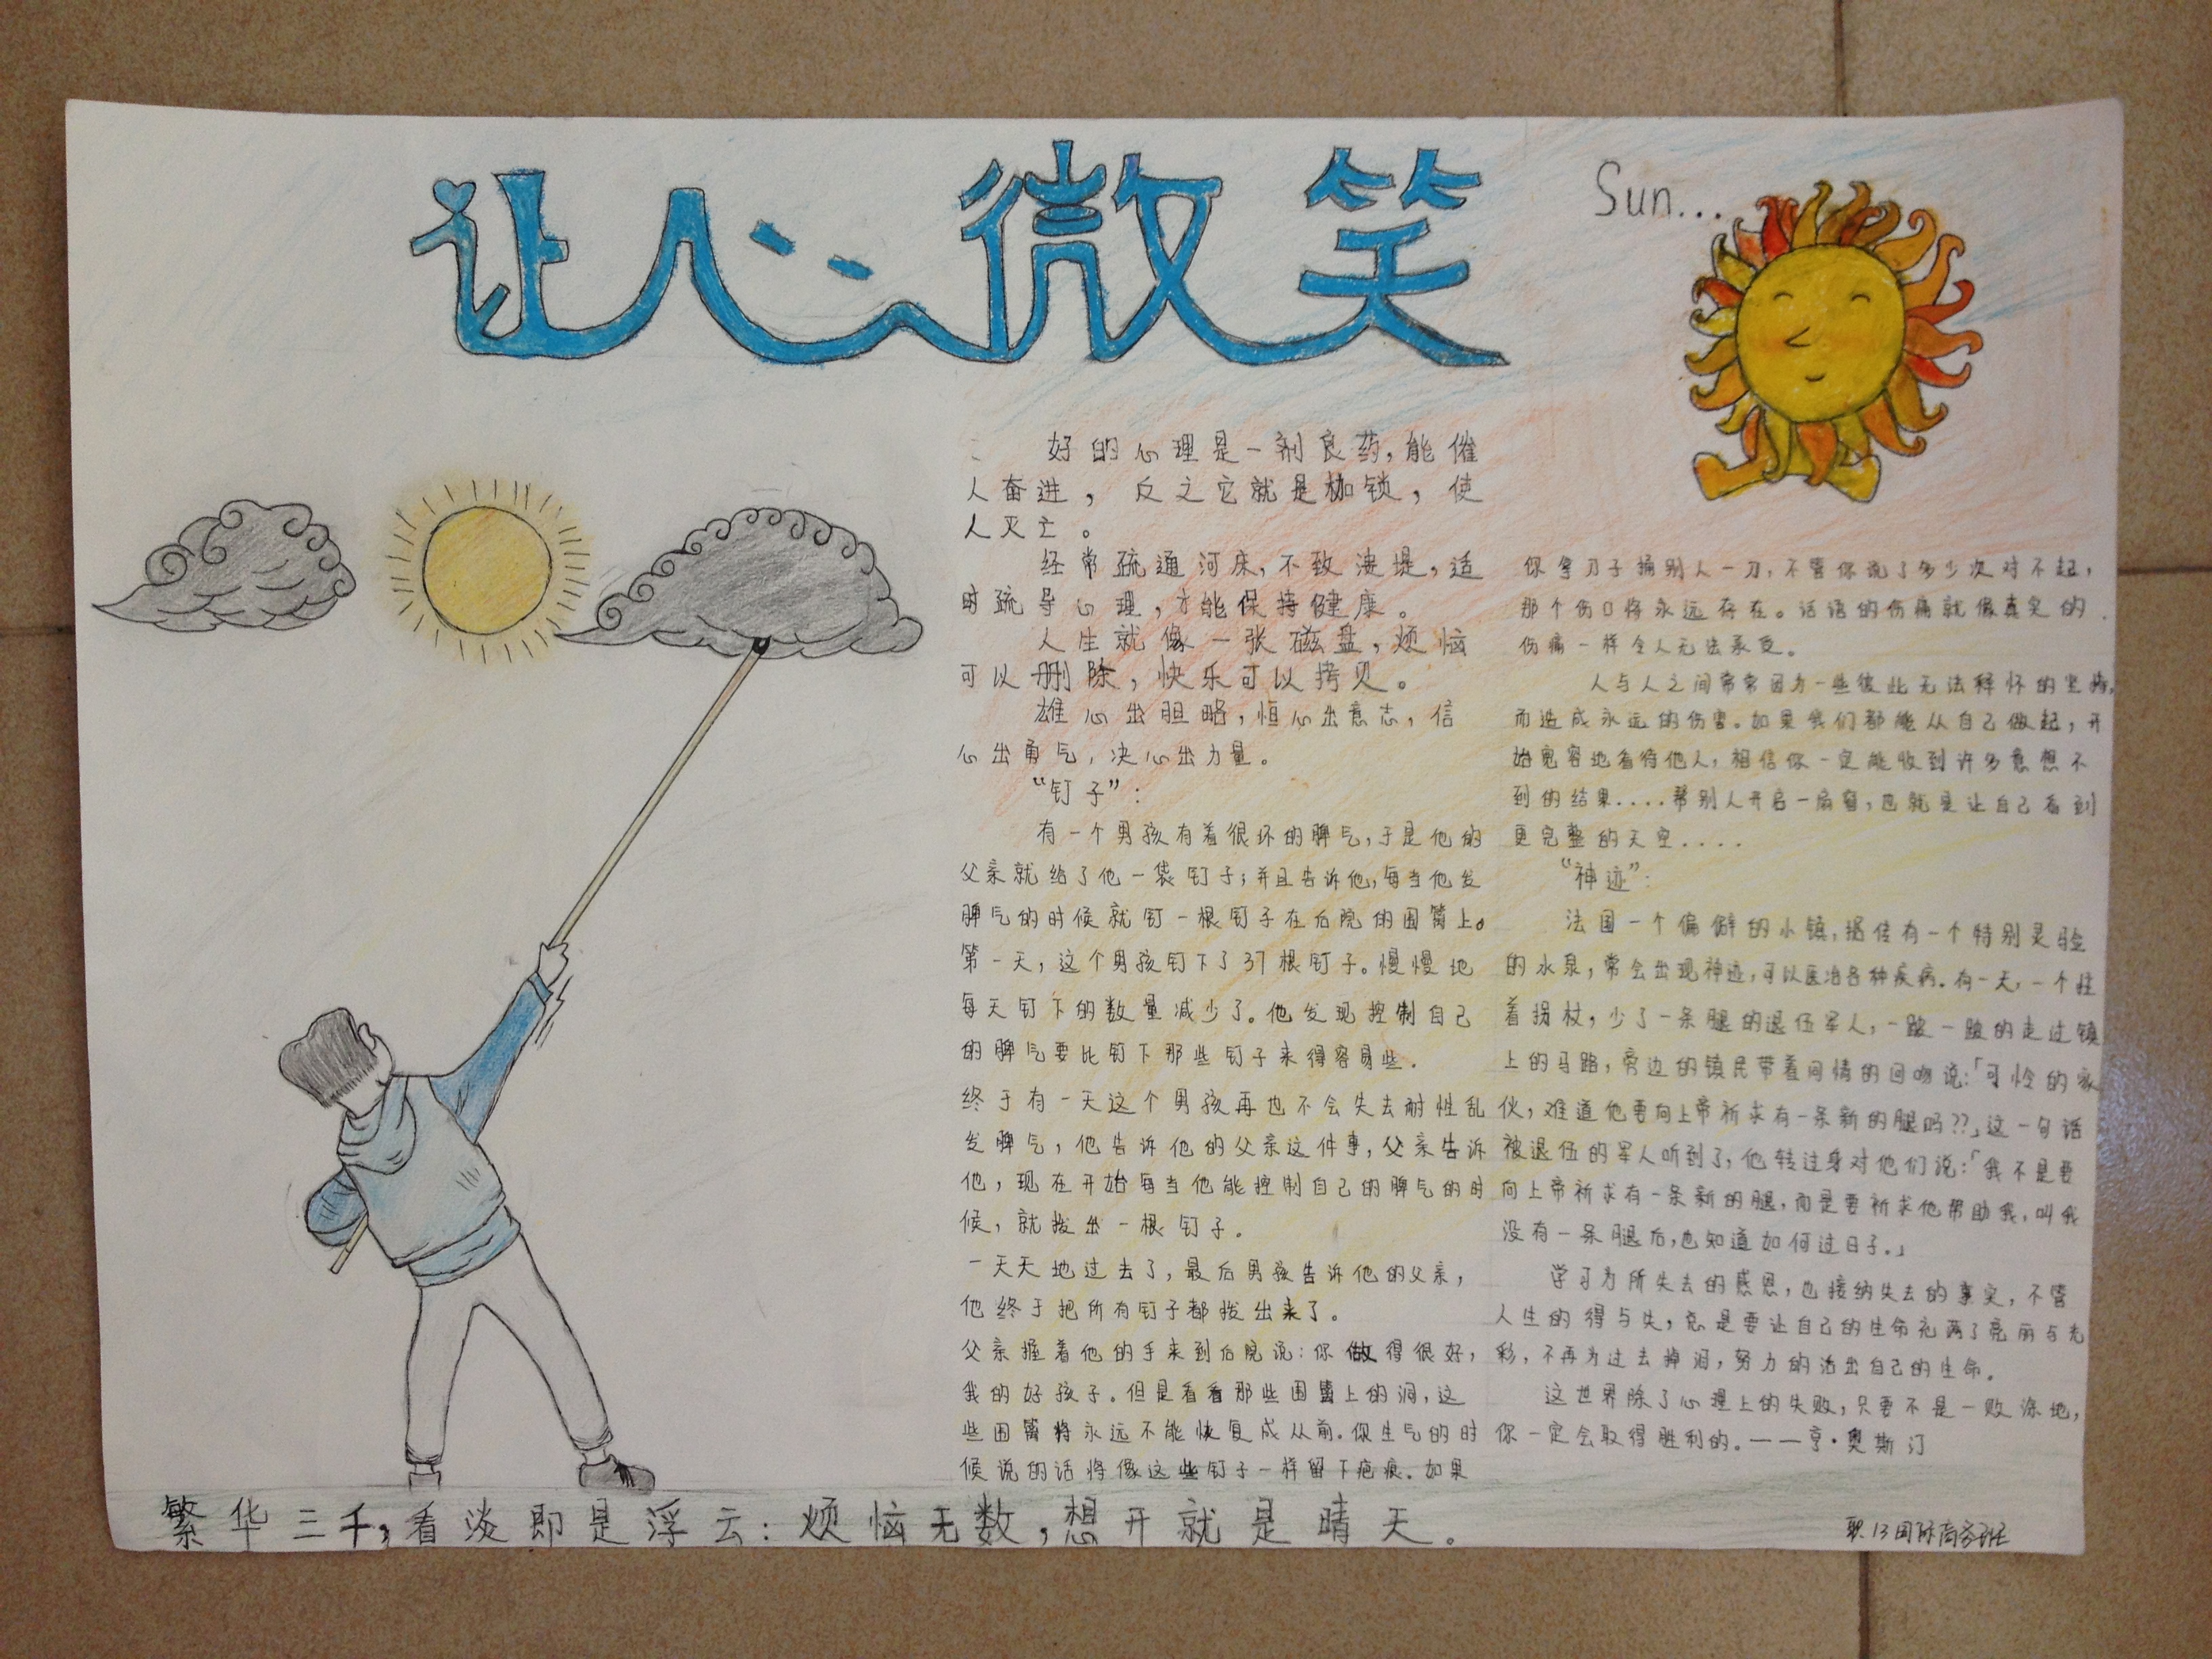 让心微笑
Sun...
好的心理是一剂良药,能催
人奋进,反之它就是枷锁,使
人灭亡。
经常疏通河床,不致决堤,适
时疏导心理,才能保持健康。
人生就像一张磁盘,烦恼
可以删除,快乐可以拷贝。
雄心出胆略,恒心出意志,信
心出勇气,决心出力量。
“钉子”:
有一个男孩有着很坏的脾气,于是他的
父亲就给了他一袋钉子;并且告诉他,每当他发
脾气的时候就钉一根钉子在后院的围篱上。
第一天,这个男孩钉下了37根钉子。慢慢地
每天钉下的数量减少了。他发现控制自己
的脾气要比钉下那些钉子来得容易些.
终于有一天这个男孩再也不会失去耐性乱
发脾气,他告诉他的父亲这件事,父亲告诉
他,现在开始每当他能控制自己的脾气的时
候,就拨出一根钉子。
一天天地过去了,最后男孩告诉他的父亲,
他终于把所有钉子都拨出来了。
父亲握着他的手来到后院说:你做得很好,
我的好孩子。但是看看那些围篱上的洞,这
些围篱将永远不能恢复成从前.你生气的时
候说的话将像这些钉子一样留下疤痕.如果
你拿刀子捅别人一刀,不管你说了多少次对不起,
那个伤口将永远存在。话语的伤痛就像真实的
伤痛一样令人无法承受。
人与人之间常常因为一些彼此无法释怀的坚持,
而造成永远的伤害。如果我们都能从自己做起,开
始宽容地看待他人,相信你一定能收到许多意想不
到的结果....帮别人开启一扇窗,也就是让自己看到
更完整的天空....
“神迹”:
法国一个偏僻的小镇,据传有一个特别灵验
的水泉,常会出现神迹,可以医治各种疾病.有一天,一个拄
着拐杖,少了一条腿的退伍军人,一跛一跛的走过镇
上的马路,旁边的镇民带着同情的回吻说:「可怜的家
伙,难道他要向上帝祈求有一条新的腿吗??」这一句话
被退伍的军人听到了,他转过身对他们说:「我不是要
向上帝祈求有一条新的腿,而是要祈求他帮助我,叫我
没有一条腿后,也知道如何过日子.」
学习为所失去的感恩,也接纳失去的事实,不管
人生的得与失,总是要让自己的生命充满了亮丽与光
彩,不再为过去掉泪,努力的活出自己的生命。
这世界除了心理上的失败,只要不是一败涂地,
你一定会取得胜利的。——亨·奥斯汀
繁华三千,看淡即是浮云:烦恼无数,想开就是晴天。
职13国际商务班